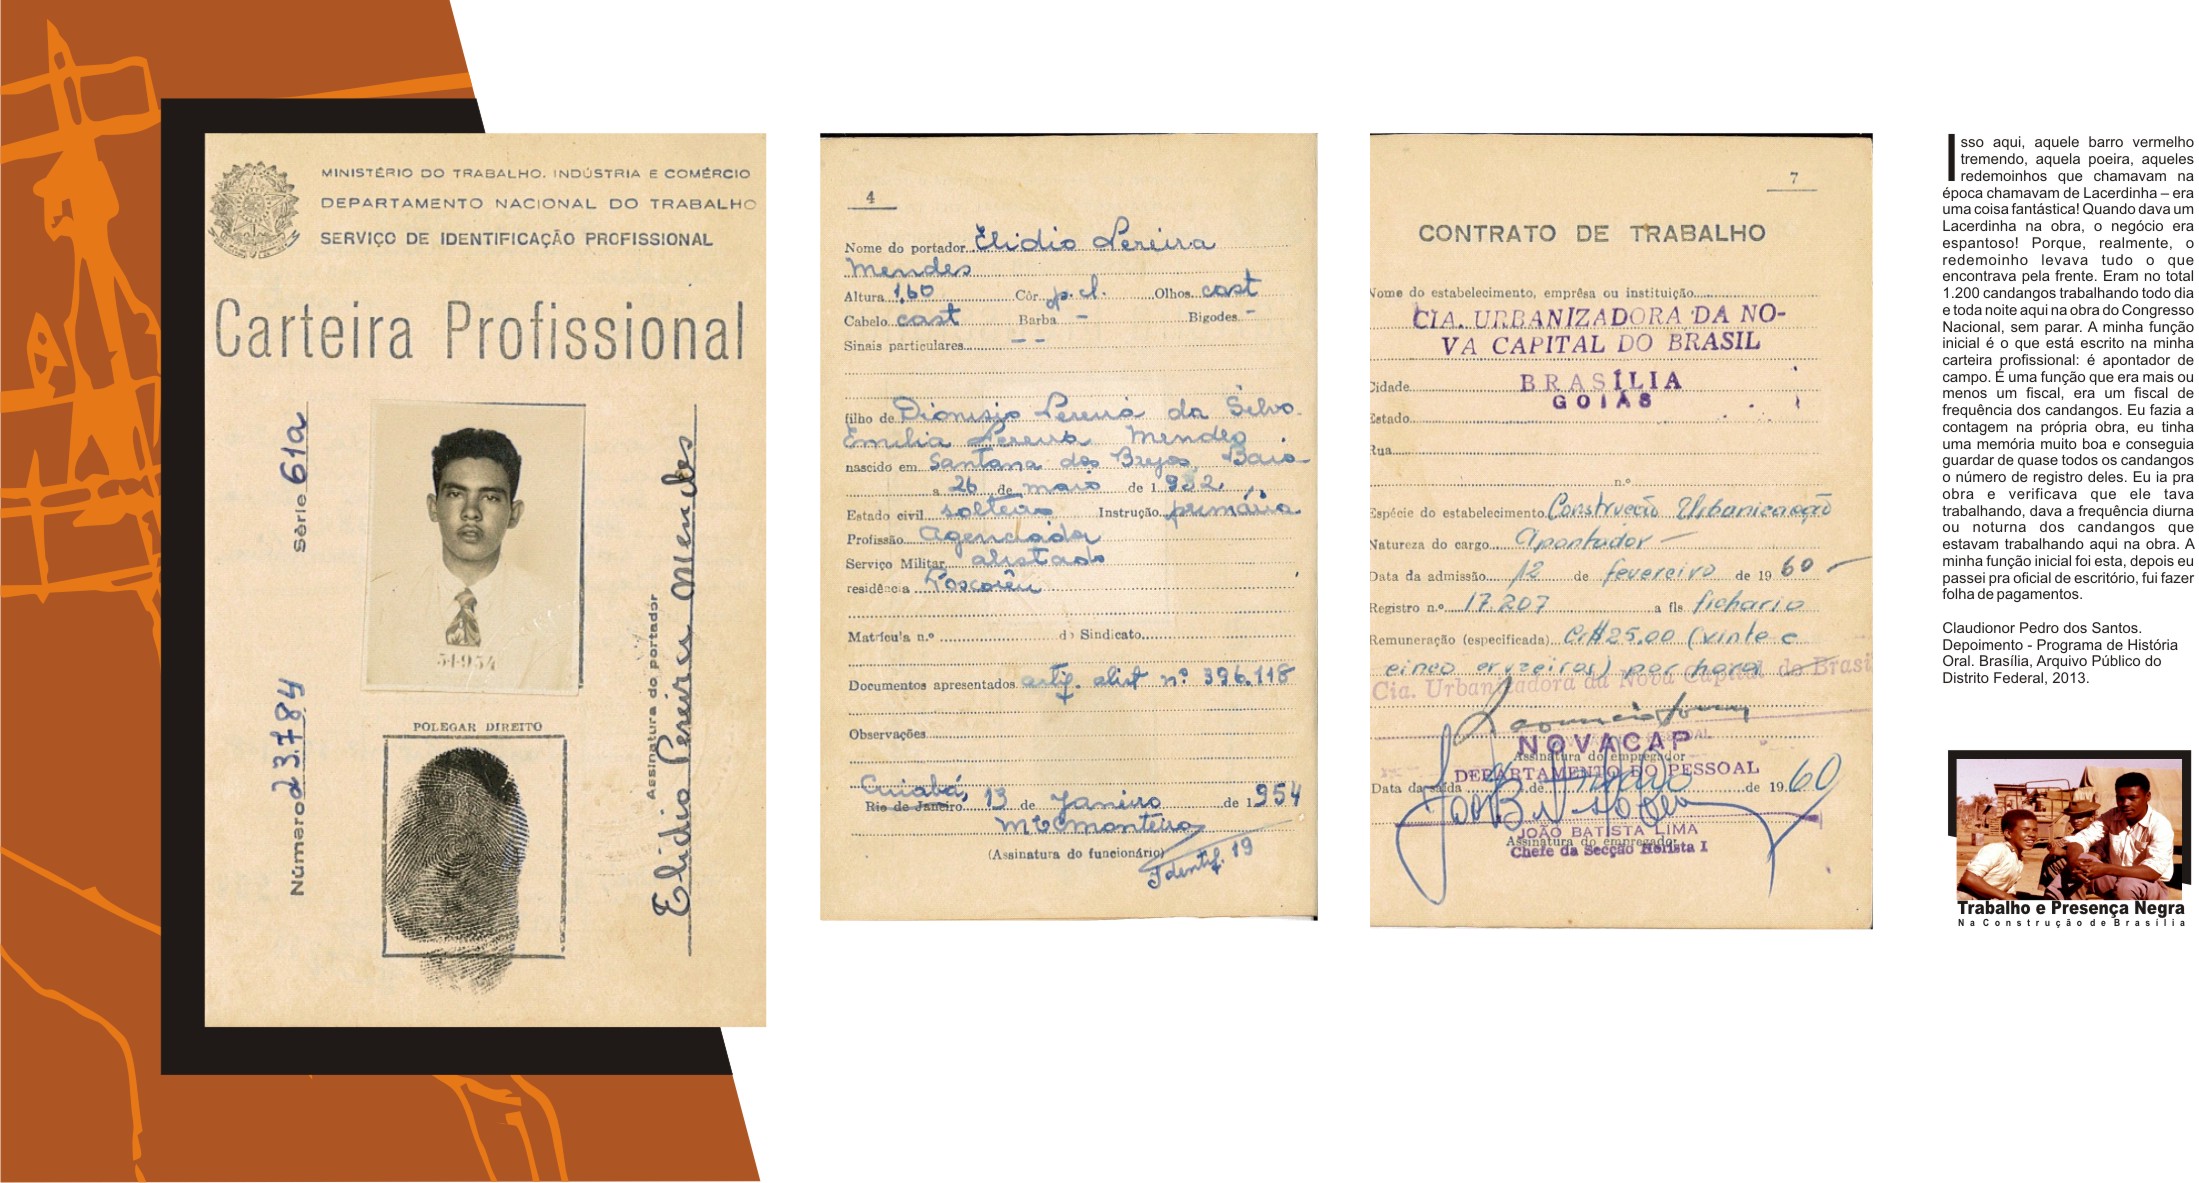 MINISTÉRIO DO TRABALHO, INDÚSTRIA E COMÉRCIO
DEPARTAMENTO NACIONAL DO TRABALHO
SERVIÇO DE IDENTIFICAÇÃO PROFISSIONAL
Carteira Profissional
Número 23.784 série 61a
54954
POLEGAR DIREITO
Assinatura do portador
Elidio Pereira Mendes
4
Nome do portador Elidio Pereira
Mendes
Altura 1,60 Côr p. cl. Olhos cast
Cabelo cast Barba - Bigodes -
Sinais particulares - -
filho de Dionisio Pereira da Silva
Emilia Pereira Mendes
nascido em Santana dos Brejos, Baia
a 26 de maio de 1.932,
Estado civil solteiro Instrução primária
Profissão Agenciador
Serviço Militar alistado
residência
Matrícula n.º do Sindicato
Documentos apresentados alist nº 396.118
Observações
Cuiabá,
Rio de Janeiro 13 de Janeiro de 1.954
(Assinatura do funcionário)
Identif. 19
7
CONTRATO DE TRABALHO
Nome do estabelecimento, emprêsa ou instituição
CIA. URBANIZADORA DA NO-
VA CAPITAL DO BRASIL
Cidade BRASÍLIA
GOIÁS
Estado
Rua
n.º
Espécie do estabelecimento Construção Urbanização
Natureza do cargo Apontador
Data da admissão 12 de fevereiro de 1960
Registro n.º 17.207 a fls fichario
Remuneração (especificada) Cr$25,00 (vinte e
cinco cruzeiros) por hora
Cia. Urbanizadora da Nova Capital do Brasil
NOVACAP
Assinatura do empregador
DEPARTAMENTO DO PESSOAL
Data da saída de de 1960
JOÃO BATISTA LIMA
Assinatura do empregador
Chefe da Secção Horista I
Isso aqui, aquele barro vermelho
tremendo, aquela poeira, aqueles
redemoinhos que chamavam na
época chamavam de Lacerdinha – era
uma coisa fantástica! Quando dava um
Lacerdinha na obra, o negócio era
espantoso! Porque, realmente, o
redemoinho levava tudo o que
encontrava pela frente. Eram no total
1.200 candangos trabalhando todo dia
e toda noite aqui na obra do Congresso
Nacional, sem parar. A minha função
inicial é o que está escrito na minha
carteira profissional: é apontador de
campo. É uma função que era mais ou
menos um fiscal, era um fiscal de
frequência dos candangos. Eu fazia a
contagem na própria obra, eu tinha
uma memória muito boa e conseguia
guardar de quase todos os candangos
o número de registro deles. Eu ia pra
obra e verificava que ele tava
trabalhando, dava a frequência diurna
ou noturna dos candangos que
estavam trabalhando aqui na obra. A
minha função inicial foi esta, depois eu
passei pra oficial de escritório, fui fazer
folha de pagamentos.
Claudionor Pedro dos Santos.
Depoimento - Programa de História
Oral. Brasília, Arquivo Público do
Distrito Federal, 2013.
Trabalho e Presença Negra
Na Construção de Brasília